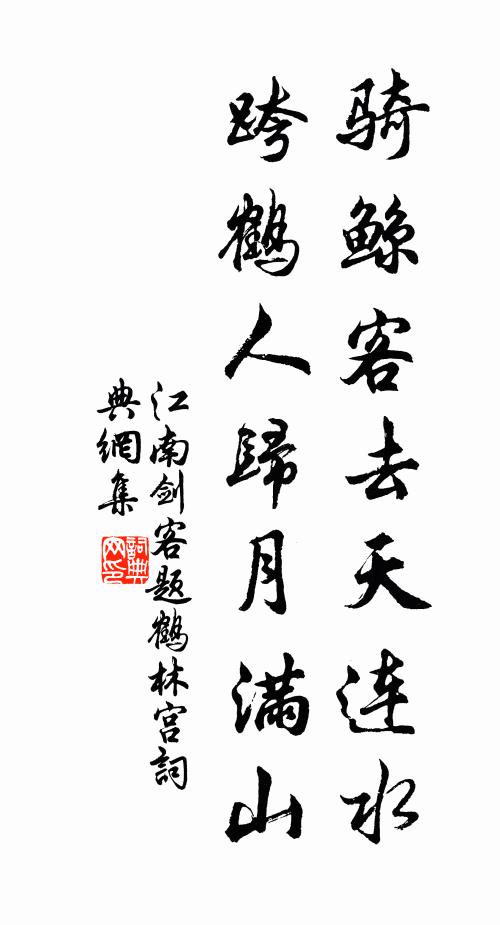 骑鲸客去天连水
跨鹤人歸月满山
江南剑客题鹤林宫詞
典網集
詞典
网印